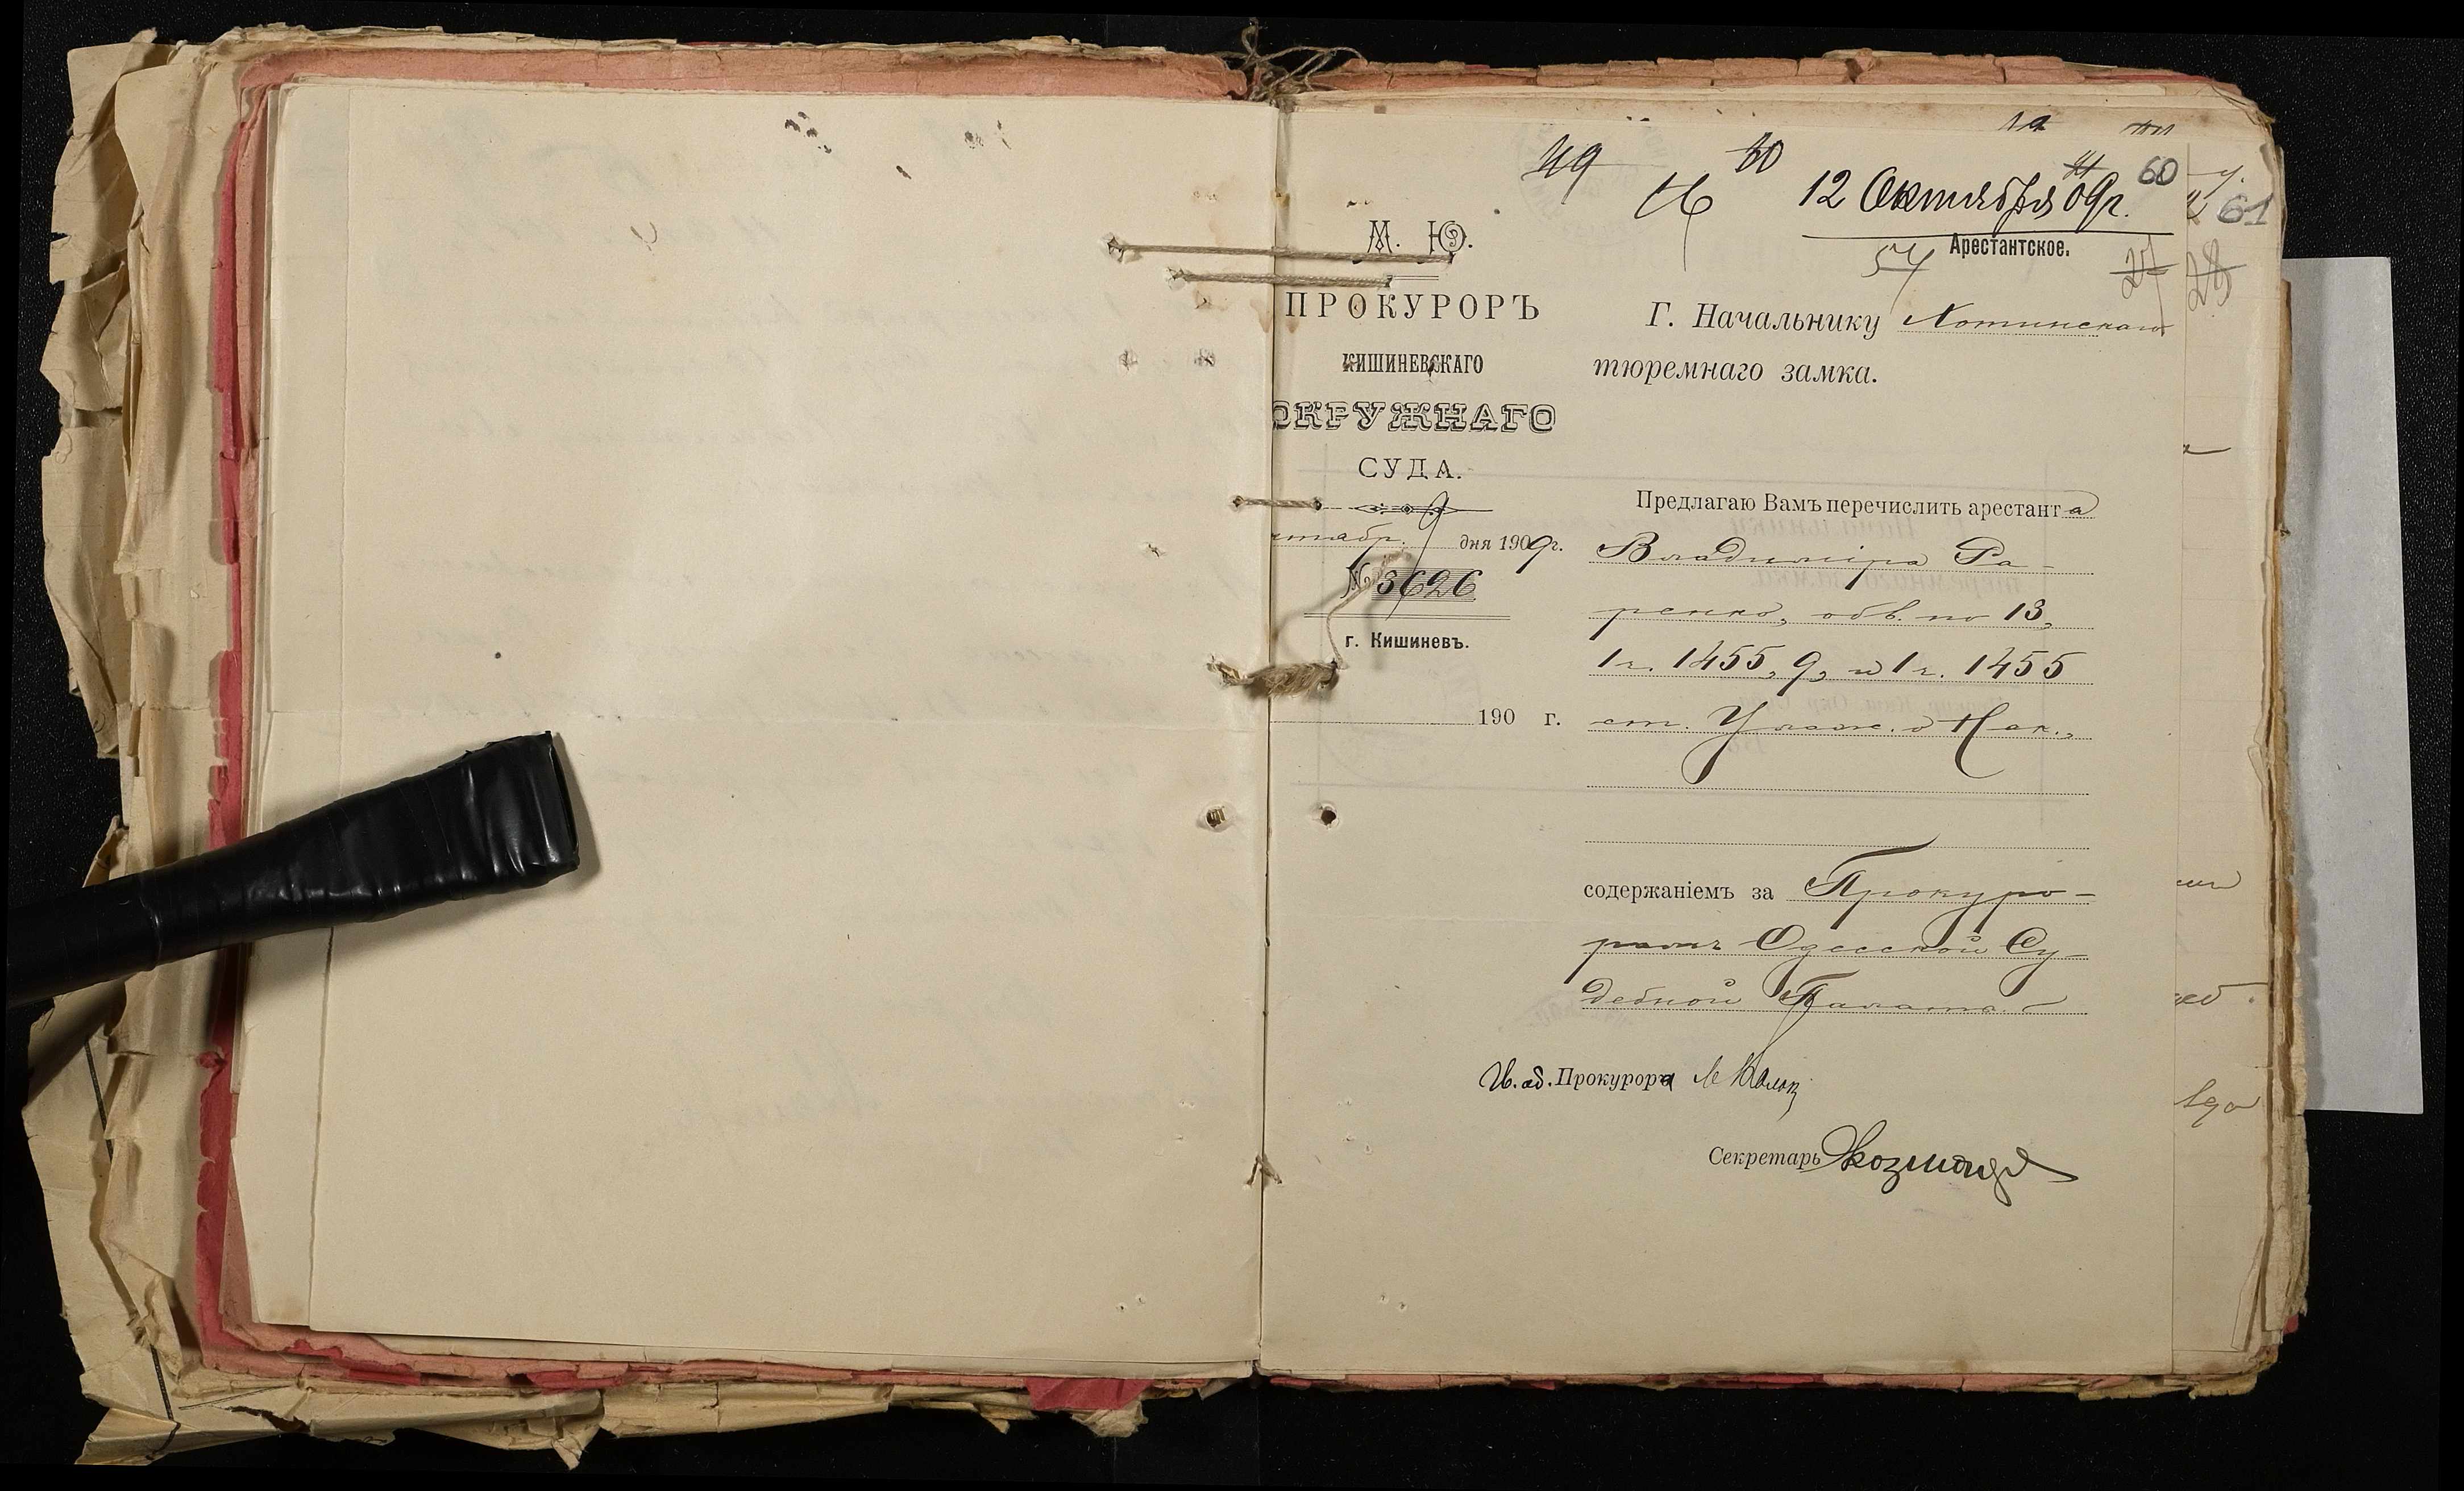 49
60
12 Октября 09г.
60
61
Арестантское.
54
27
28
М. Ю.
ПРОКУРОРЪ
КИШИНЕВСКАГО
ОКРУЖНАГО
СУДА.
ктабр. 9 дня 1909г.
№ 3626
г. Кишиневъ.
190 г.
Г. Начальнику Хотинскаго
тюремнаго замка.
Предлагаю Вамъ перечислить арестанта
Владиміра Ра-
ренко, обв. по 13,
1 ч. 1455, 9, и 1 ч. 1455
ст. Улож. о Нак.,
содержаніемъ за Прокуро-
ромъ Одесской Су-
дебной Палаты.
И. об. Прокурора
Секретарь